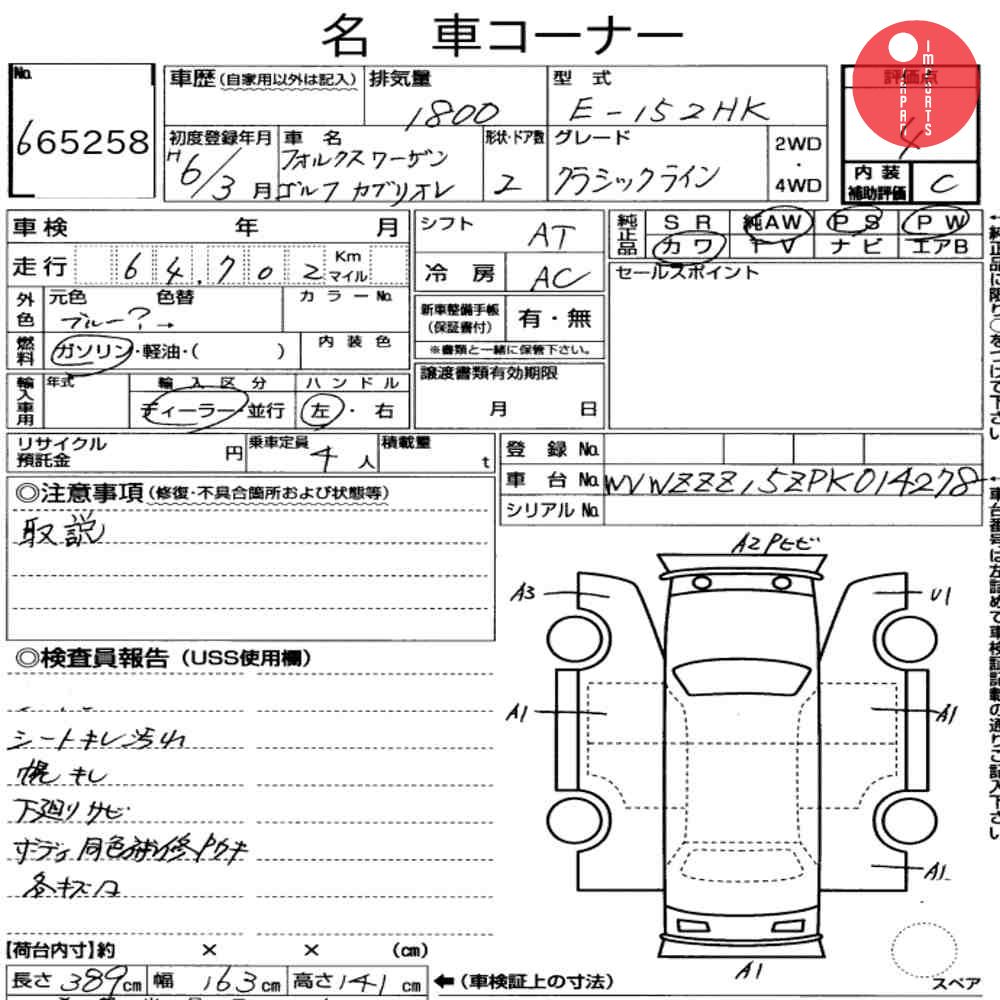 名 車コーナー
IMPORTS JAPAN
No. 665258
車歴(自家用以外は記入)
排気量 1800
型式 E-152HK
評価点 4
初度登録年月 H6/3月
車名 フォルクスワーゲン
ゴルフ カブリオレ
形状・ドア数 2
グレード クラシックライン
2WD・4WD
内装補助評価 C
車検 年 月
シフト AT
純正品 SR 純AW PS PW
カワ TV ナビ エアB
走行 64,702 Km マイル
冷房 AC
セールスポイント
外色 元色 色替 カラーNo.
ブルー?→
新車整備手帳(保証書付) 有・無
※書類と一緒に保管下さい。
燃料 ガソリン・軽油・( )
内装色
輸入車用 年式 輸入区分 ハンドル
ディーラー・並行 左・右
譲渡書類有効期限
月 日
リサイクル預託金 円
乗車定員 4人
積載量 t
登録No.
車台No. WVWZZZ15ZPK014278
シリアルNo.
◎注意事項(修復・不具合箇所および状態等)
取説
←純正品に限り○をつけて下さい。
←車台番号は左詰めで車検証記載の通りご記入下さい
A2Pヒビ
A3
U1
A1
A1
A1
A1
◎検査員報告(USS使用欄)
シートキレ汚れ
幌キレ
下廻りサビ
ボディ同色補修タウキ
各キズ凹
【荷台内寸】約 × × (cm)
長さ389cm 幅163cm 高さ141cm
←(車検証上の寸法)
スペア